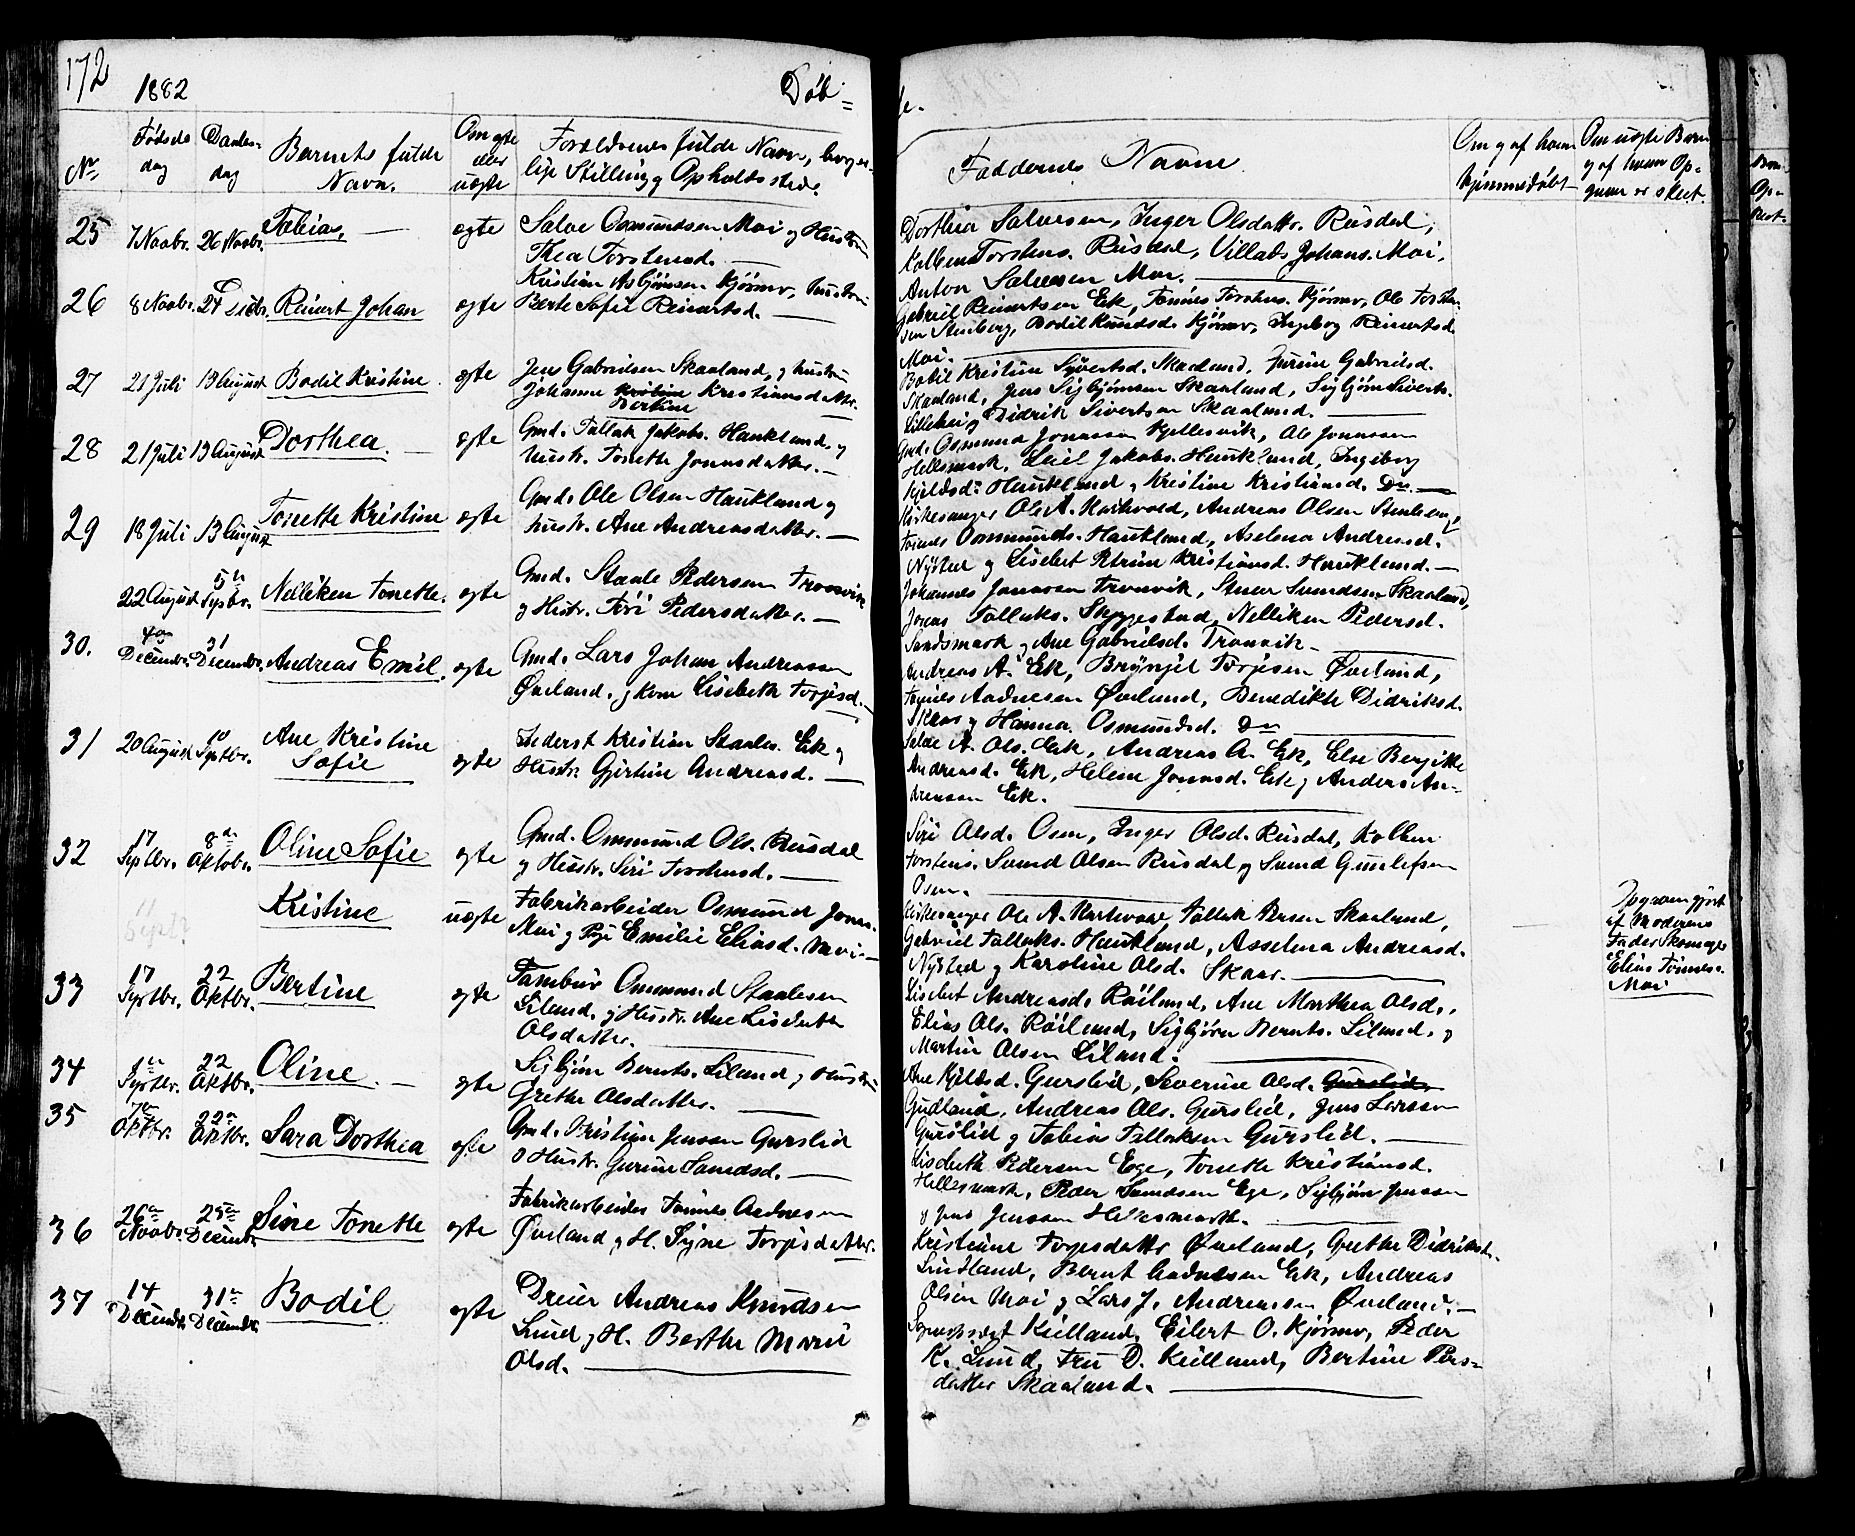 172
1882
Døb=
Nr
Fødsels dag
Daabs- dag
Barnets fulde Navn.
Om ægte eller uægte
Forældrenes fulde Navn, borger-
lige Stilling og Opholdssted.
Faddernes Navne
Om og af hvem hjemmedøbt
Om uægte Barn og af hvem Op-
gaven er skeet.
25 7 Novbr. 26 Novbr. Tobias, — ægte Salve Osmundsen Moi og Hustru
Thea Torstensd. —
Dorthea Salvesen, Inger Olsdattr. Rusdal,
Kolben Torstens. Rusdal, Villads Johans. Moi,
Anton Salvesen Moi. —
26 8 Novbr. 24 Decbr. Reinert Johan ægte Kristian Asbjørnsen Kjørmo, Hustru
Berte Sofie Reinertsd. —
Gabriel Reinertsen Eek, Tønnes Torstens. Kjørmo, Ole Torsten-
sen Stenberg, Bodil Knudsd. Kjørmo, Ingeborg Reinertsd.
Moi. —
27 21 Juli 13 August Bodil Kristine ægte Jens Gabrielsen Skaaland, og Hustru
Johanne Kristine Kristiansdatter.
Bertine
Bodil Kristine Syvertsd. Skaaland, Gurine Gabrielsd.
Skaaland, Jens Sigbjørnsen Skaaland, Sigbjørn Siverts.
og Didrik Sivertsen Skaaland. —
28 21 Juli 13 August Dorthea. — ægte Gmd. Tallak Jakobs. Haukland og
Hustr. Tonette Jonasdatter. —
Gmd. Osmund Jonassen Kjellesvik, Ole Jonassen
Hellesmark, Jakobs. Haukland, Ingeborg
Kjeldsd. Haukland og Kristine Kristiansd. Do. —
29 18 Juli 13 August Tonette Kristine ægte Gmd. Ole Olsen Haukland og
Hustr. Ane Andreasdatter. —
Kirkesanger Ole A. Andreas Olsen Stenberg,
Tønnes Osmunds. Haukland, Aselena Andreasd.
Nysted og Lisebet Petrine Kristiansd. Haukland. —
22 August 5te Septbr. Nelliken Tonette. ægte Gmd. Staale Pedersen Tronsvik
og Hustr. Tori Pedersdatter. —
Johannes Jonassen Tronsvik, Svendsen Skaaland,
Jonas Tallaks. Skyggestad, Nelliken Pedersd.
Sandsmark og Ane Gabrielsd. Tronsvik —
30. 4de Decembr. 31 Decembr. Andreas Emil. ægte Gmd. Lars Johan Andreassen
Øveland. og Kone Lisebeth Torjisd. —
Andreas A. Eek, Brynjel Torjesen Øveland,
Tønnes Aadnesen Øveland, Benedikte Didriksd.
Skaar og Hanna Osmundsd. Do —
31 20 August 10 Septbr. Ane Kristine
Sofie ægte Inderst Kristian Staales. Eek og
Hustr. Gjertine Andreasd. —
Salve A. Ols. Eek, Andreas A. Eek, Else Bergitte
Andreasd. Eek, Helene Jonasd. Eek og Anders An-
dreasen Eek. —
32 17 Septbr. 8de Oktobr. Oline Sofie ægte Gmd. Osmund Ols. Rusdal
og Hustr. Siri Torstensd. —
Siri Olsd. Osen, Inger Olsd. Rusdal, Kolben
Torstens. Svend Olsen Rusdal og Svend Gunlefsen
Osen. —
11 Sept? Kristine uægte Fabrikarbeider Osmund Jonas.
Moi og Pige Emilie Eliasd. Moi. —
Kirkesanger Ole A. Tallak Persen Skaaland,
Gabriel Tallaks. Haukland, Asselena Andreasd.
Nysted og Karoline Olsd. Skaar. —
Opgaven gjort
af Moderens
Fader Skomager
Elias Tønness.
Moi
33 17 Septbr. 22 Oktbr. Bertine ægte Tambur Osmund Staalesen
Liland, og Hustr. Ane Lisebeth
Olsdatter. —
Lisebet Andreasd. Røiland, Ane Marthea Olsd.,
Elias Ols. Røiland, Sigbjørn Bernts. Liland, og
Martin Olsen Liland. —
34 1te Septbr. 22 Oktbr. Oline. — ægte Sigbjørn Bernts. Liland og Hustru
Grethe Olsdatter. —
Ane Kjeldsd. Gurslid, Severine Olsd. Gurslid,
Gudland, Andreas Ols. Gurslid, Jens Larssen
Gurslid og Tobias Tallaksen Gurslid. —
35 7de Oktbr. 22de Oktbr. Sara Dorthea ægte Gmd. Kristian Jensen Gurslid
o Hustr. Gurine Samdsd. —
Lisebeth Pedersen Ege, Tonette Kristiansd.
Hellesmark, Peder Svendsen Ege, Sigbjørn Jenssen
og Jens Jenssen Hellesmark. —
36 26de Novbr. 25de Decembr. Sine Tonette ægte Fabrikarbeider Tønnes Aadnesen
Øveland og H. Signe Torjisdatter.
Kristiane Torjesdatter Øveland, Grethe Didriksd.
Lindland, Bernt Aadnesen Eek, Andreas
Olsen Moi og Lars J. Andreassen Øveland. —
37 14 Decembr. 31te Decembr. Bodil ægte Dreier Andreas Knudsen
Lund og H. Berthe Marie
Olsd. —
Sogneprest Kielland, Eilert O. Kjørmo, Peder
K. Lund, Fru D. Kielland, Bertine Pers-
datter Skaaland. —